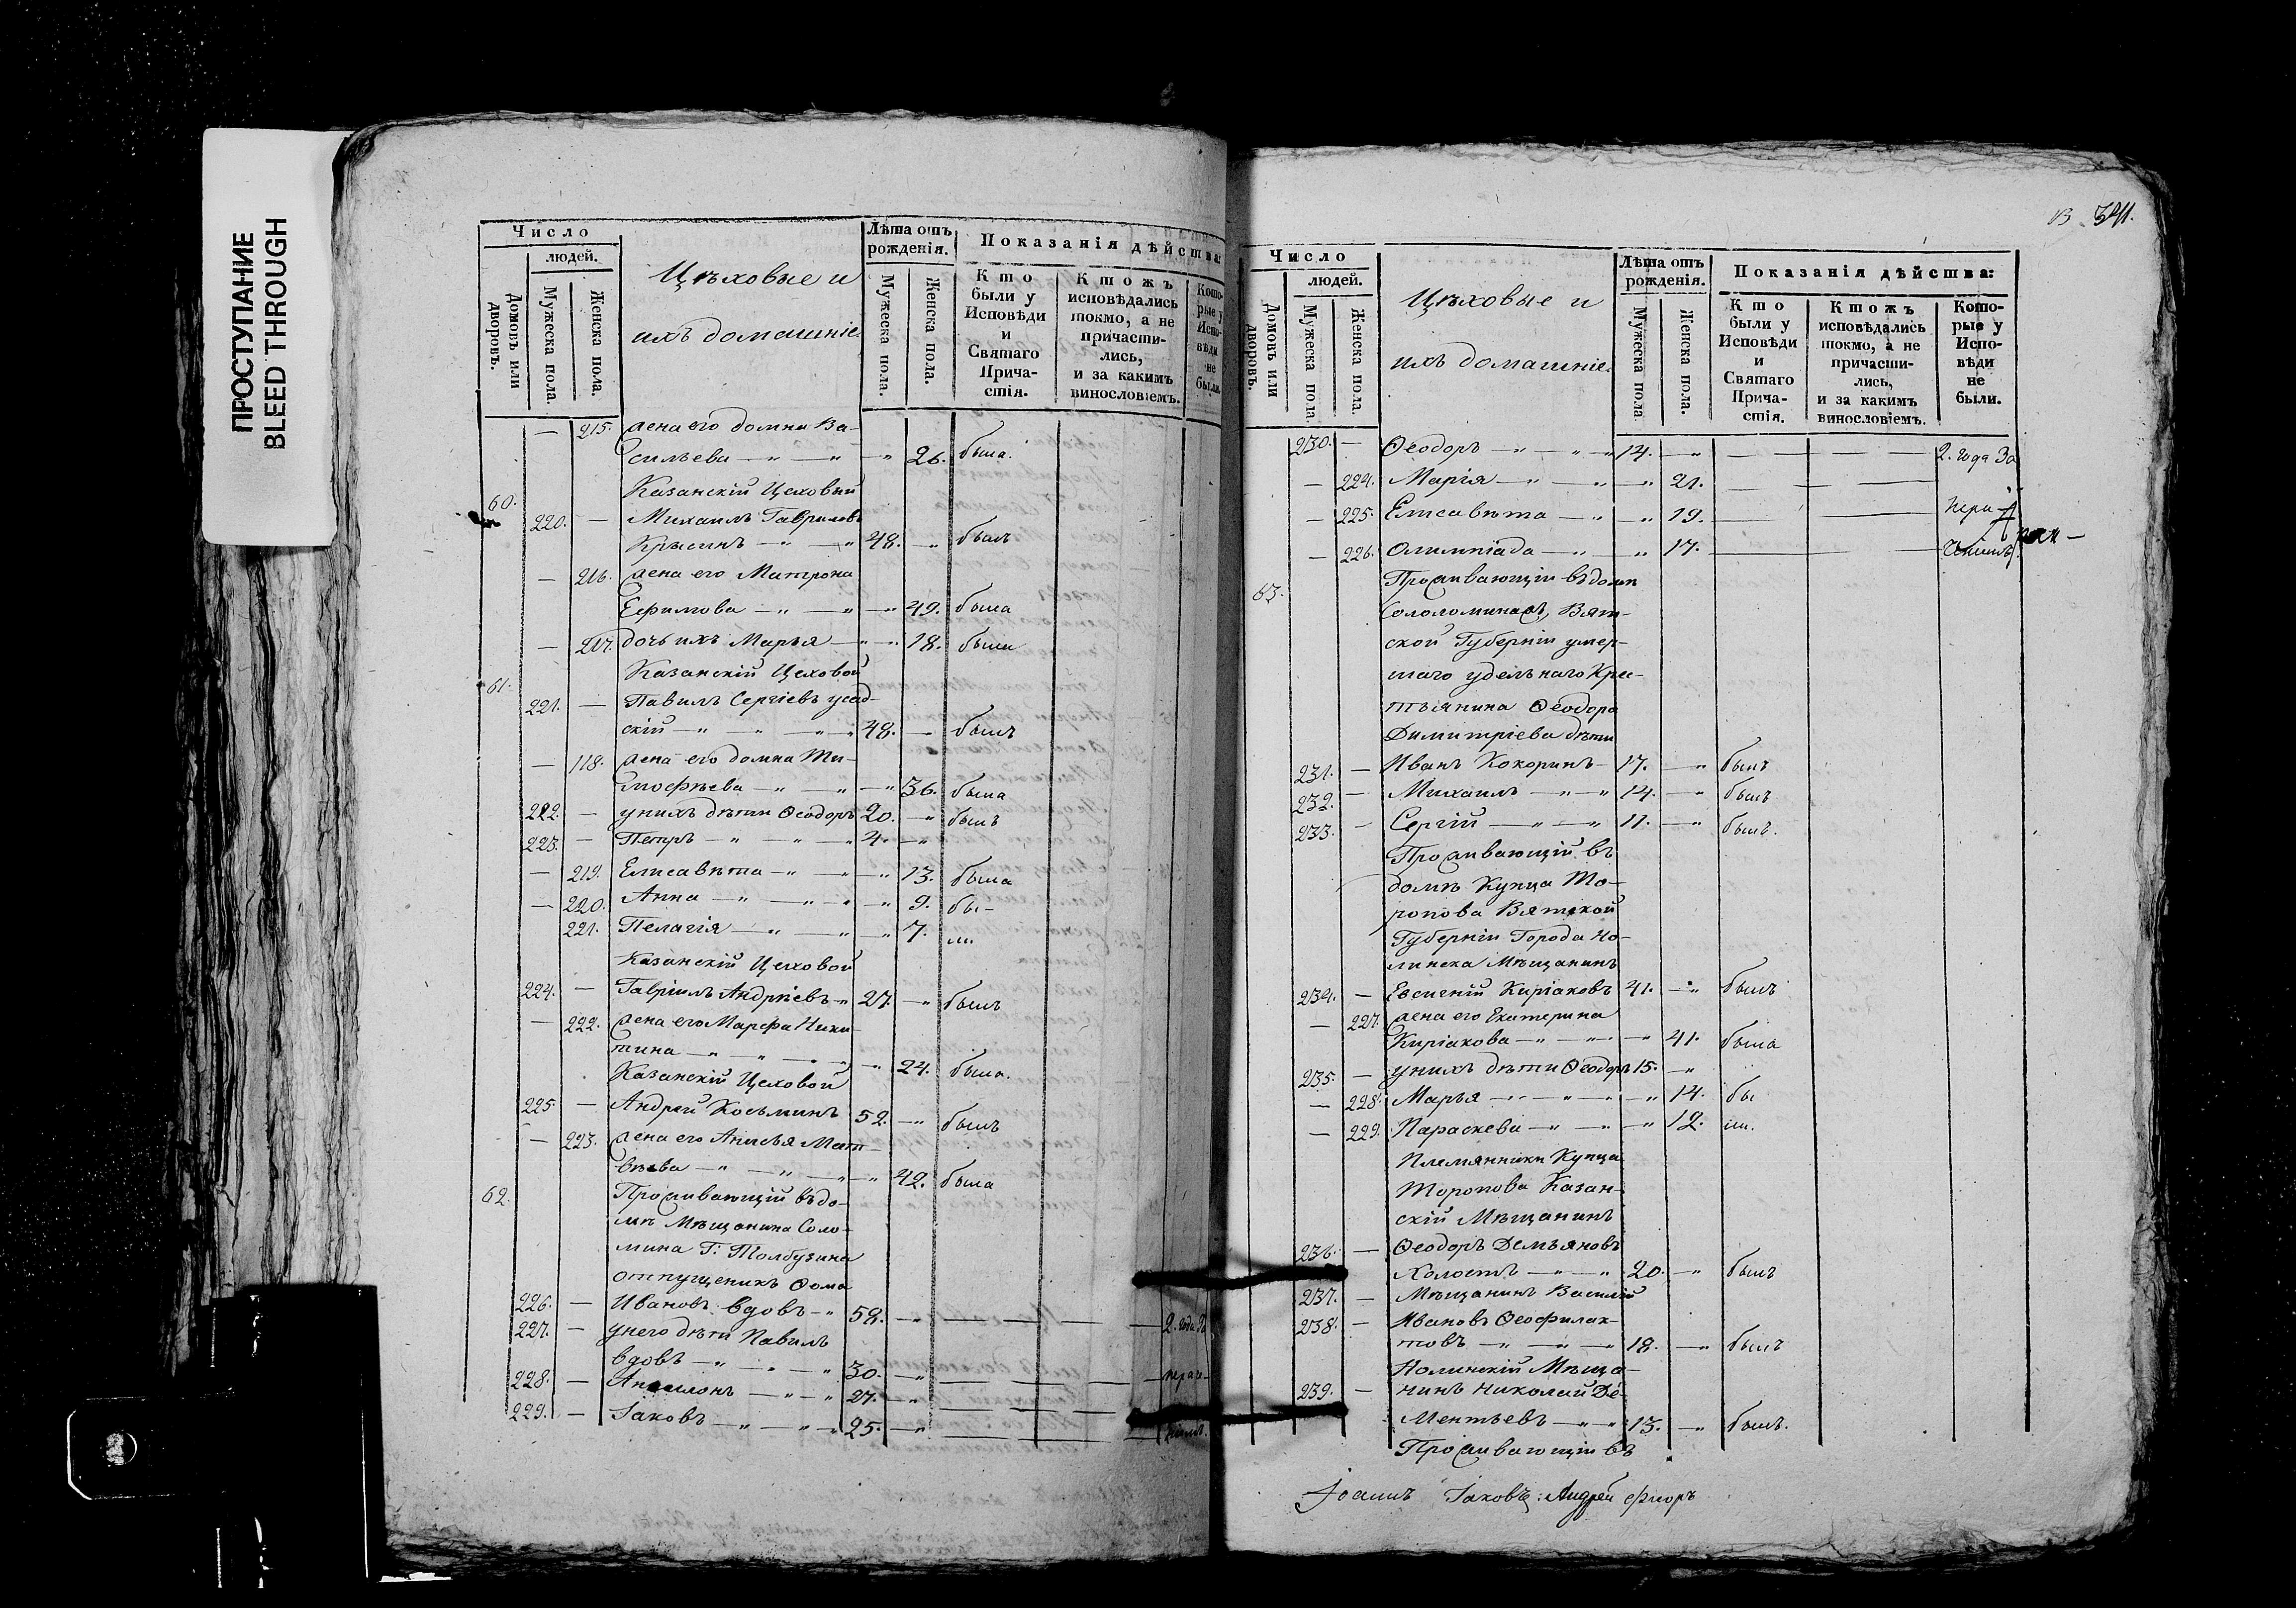 ПРОСТУПАНИЕ
BLEED THROUGH
Число
людей.
Домовъ или дворовъ.
Мужеска пола.
Женска пола.
Цѣховые и
ихъ домашніе.
Лѣта отъ рожденія.
Мужеска пола.
Женска пола.
Показанія дѣйства:
Кто были у Исповѣди и Святаго Прича-стія.
Ктожъ исповѣдались токмо, а не причасти-лись, и за какимъ винословіемъ.
Кото-рые у Испо-вѣди не были.
— 215. жена его домна Ва-
сильева — " — " — " 26. была.
60. Казанскій Цеховый
220. — Михаилъ Гавриловъ
Крысинъ — " — " 48. — " былъ
— 216. жена его Матрона
Ефимова — " — " — " 49. была
— 217. дочь ихъ Марья — " — " 18. была
61. Казанскій Цеховой
221. — Павилъ Сергіевъ усад-
скій — " — " — " 48. — былъ
— 118. жена его домна Ти-
мофѣева — " — " — " 36. была
222. — у нихъ дѣти Ѳеодоръ 20. — " былъ
223. — Петръ — " — " — " 4. — "
— 219. Елисавѣта — " — " — " 13. была
— 220. Анна — " — " — " 9. бы-
221. Пелагія — " — " — " 7. ли
Казанскій Цеховой
224. — Гавріилъ Андрѣевъ " 27. — " былъ
— 222. жена его Марѳа Ники-
тина — " — " — " 24. была.
Казанскій Цеховой
225. — Андрей Косьминъ 52. — " былъ
— 223. жена его Анисья Мат-
вѣева — " — " — " 42. была
62. Проживающій въ до-
мѣ Мѣщанина Соло-
мина Г: Толбузина
отпущеникъ Ѳома
226. — Ивановъ вдовъ — " 58. — " — — — 2. года За
227. — у него дѣти Павилъ
вдовъ — " — " 30. — " — — —
228. — — " — " 27. — " — — —
229. — Іаковъ — " — " — " 25. — " — — —
341.
Число
людей.
Домовъ или дворовъ.
Мужеска пола.
Женска пола.
Цѣховые и
ихъ домашніе.
Лѣта отъ рожденія.
Мужеска пола.
Женска пола.
Показанія дѣйства:
Кто были у Исповѣди и Святаго Прича-стія.
Ктожъ исповѣдались токмо, а не причасти-лись, и за какимъ винословіемъ.
Кото-рые у Испо-вѣди не были.
230. — Ѳеодоръ — " — " — " 14. — " — — — 2. года За
— 224. Марія — " — " — " 21. — — —
— 225. Елисавѣта — " — " 19. — — —
— 226. Олимпіада — " — " 17. — — —
63. Проживающіи въ домѣ
Соломина, Вят-
ской Губерніи умер-
шаго удѣльнаго Крес-
тьянина Ѳеодора
Димитріева дѣти
231. — Иванъ Кокоринъ — 17. — " былъ
232. — Михаилъ — " — " 14. — " былъ
233. — Сергій — " — " 11. — " былъ.
Проживающій въ
домѣ Купца То-
ропова Вятской
Губерніи Города Но-
линска Мѣщанинъ
234. — Евгеній Киріаковъ 41. — " былъ
— 227. жена его Екатерина
Киріакова — " — " — " 41. была
235. — у нихъ дѣти Ѳеодоръ 15. — "
— 228. Марья — " — " — " 14. бы
— 229. Параскева — " — " — " 12. ли.
Племянники Купца
Торопова Казан-
скій Мѣщанинъ
236. — Ѳеодоръ Демьяновъ
Холостъ — " — " 20. — " былъ
237. — Мѣщанинъ Василій
238. — Ивановъ Ѳеофилак-
товъ — " — " — " 18. — " былъ
Нолинскій Мѣща-
239. — нинъ Николай Де-
ментьевъ — " — " 13. — " былъ.
Проживающіи въ
Іоаннъ Іаковъ: Андрей